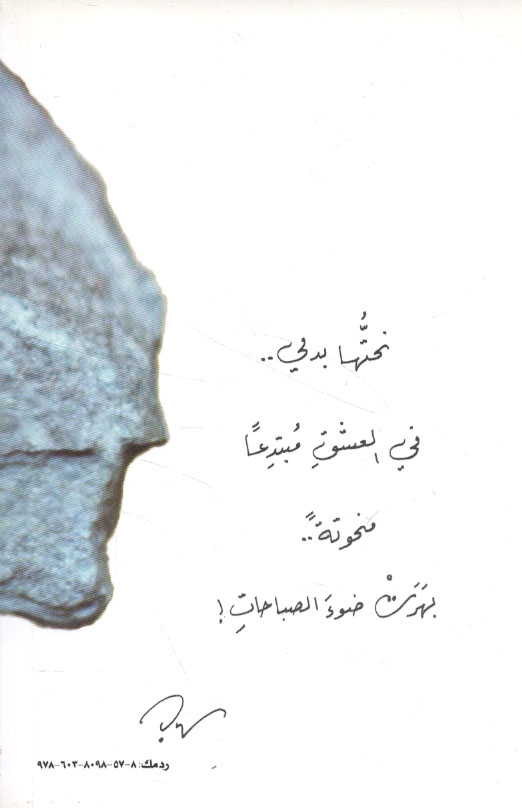 نحتُّها بدمي..
في العشقِ مُبتدِعاً
منحوتةً..
بهَرَتْ ضوءَ الصباحاتِ !
ردمك: ٨-٥٧-٨٠٩٨-٦٠٣-٩٧٨